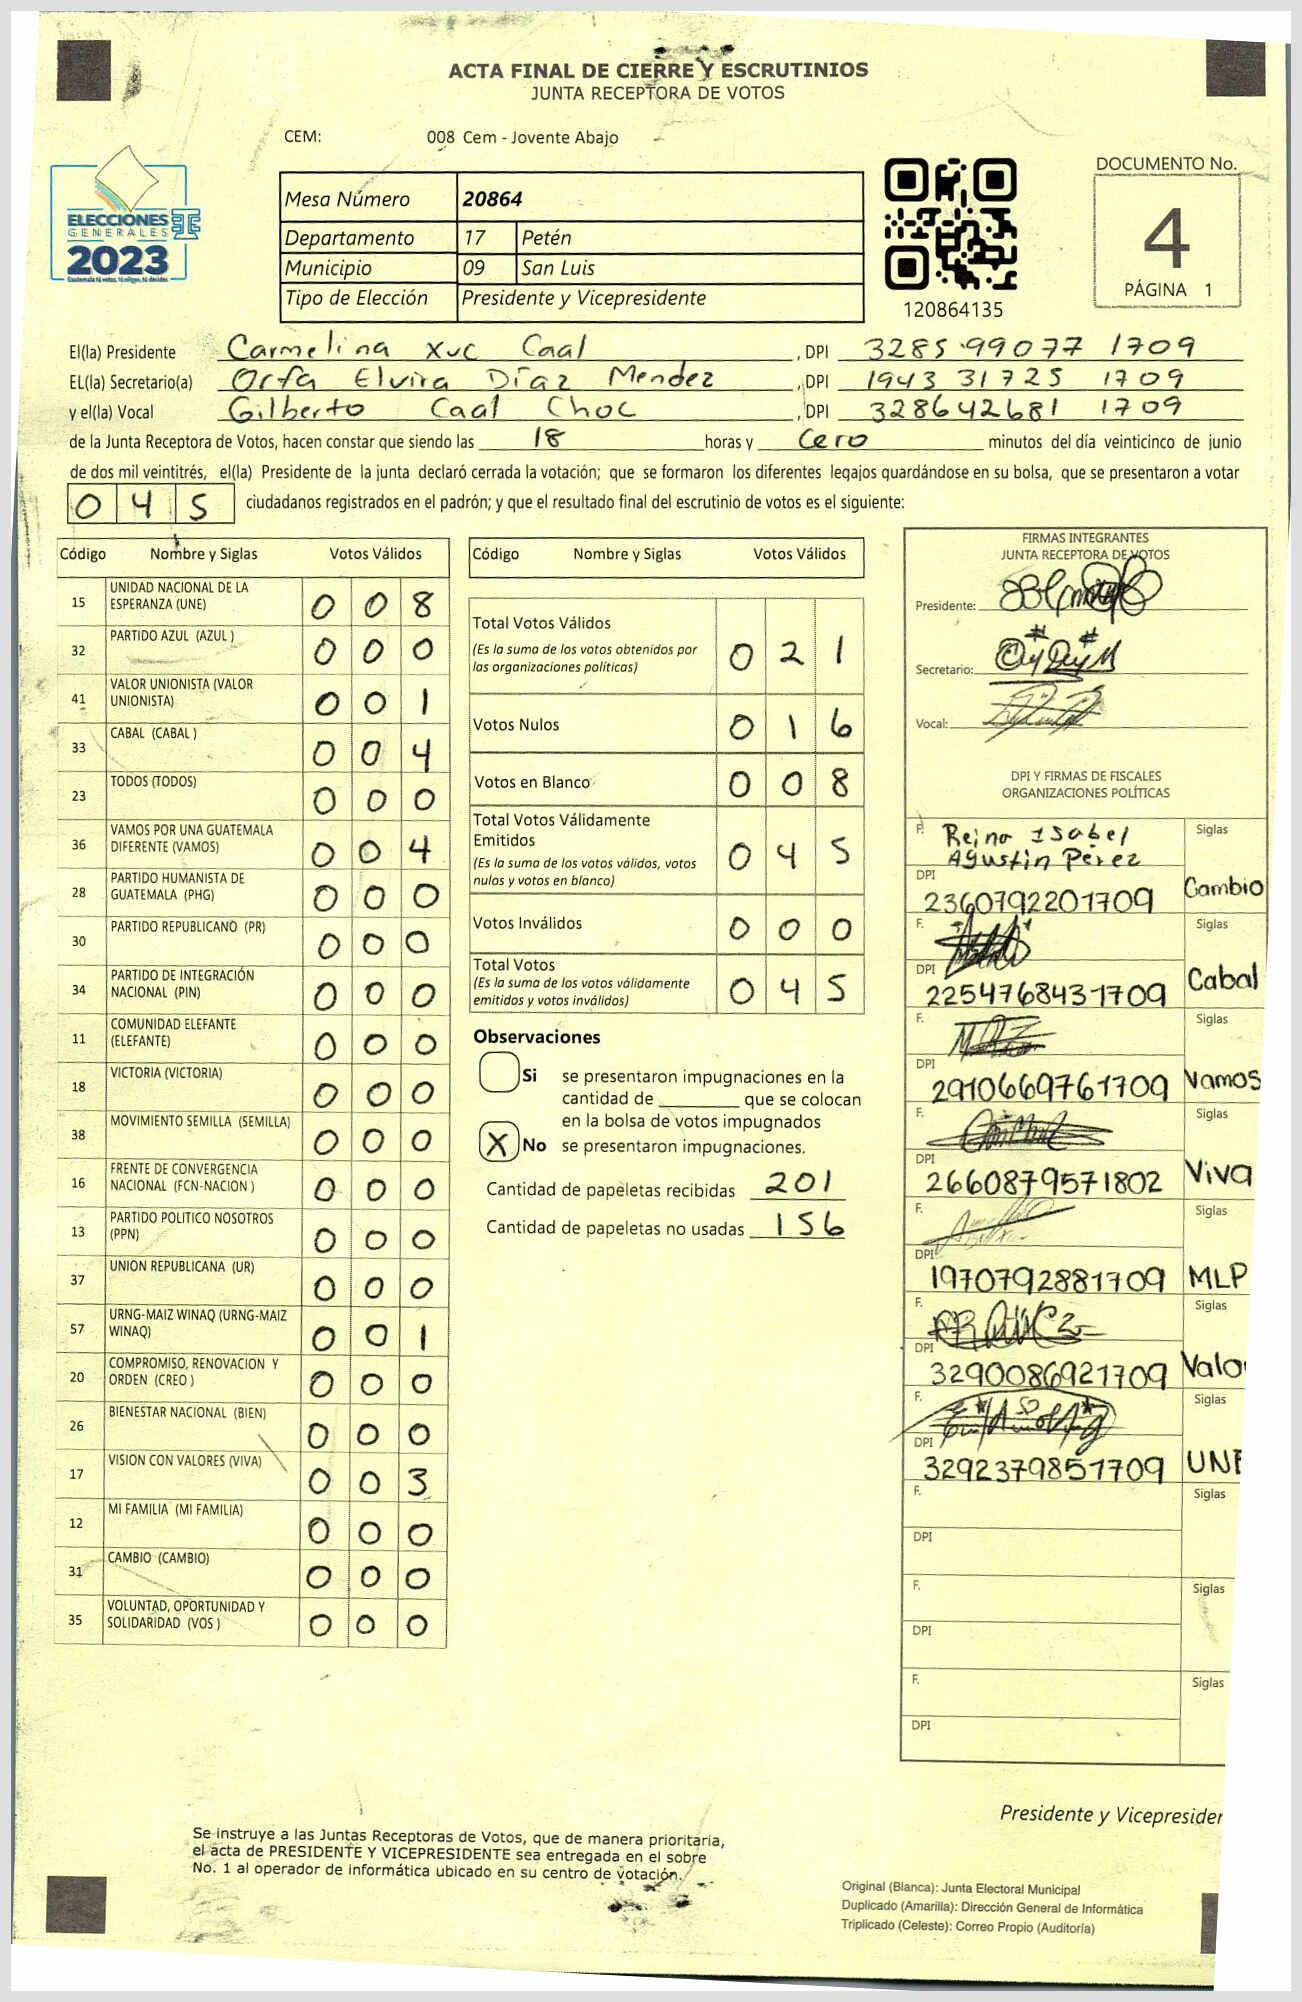 ACTA FINAL DE CIERRE Y ESCRUTINIOS
JUNTA RECEPTORA DE VOTOS
CEM: 008 Cem - Jovente Abajo
ELECCIONES
GENERALES
2023
Guatemala tú votas, tú eliges, tú decides
Mesa Número 20864
Departamento 17 Petén
Municipio 09 San Luis
Tipo de Elección Presidente y Vicepresidente
120864135
DOCUMENTO No.
4
PÁGINA 1
El(la) Presidente Carmelina Xuc Caal , DPI 3285 99077 1709
EL(la) Secretario(a) Orfa Elvira Díaz Mendez , DPI 1943 31725 1709
y el(la) Vocal Gilberto Caal Choc , DPI 328642681 1709
de la Junta Receptora de Votos, hacen constar que siendo las 18 horas y cero minutos del día veinticinco de junio
de dos mil veintitrés, el(la) Presidente de la junta declaró cerrada la votación; que se formaron los diferentes legajos guardándose en su bolsa, que se presentaron a votar
045 ciudadanos registrados en el padrón; y que el resultado final del escrutinio de votos es el siguiente:
Código Nombre y Siglas Votos Válidos
15 UNIDAD NACIONAL DE LA ESPERANZA (UNE) 0 0 8
32 PARTIDO AZUL (AZUL ) 0 0 0
41 VALOR UNIONISTA (VALOR UNIONISTA) 0 0 1
33 CABAL (CABAL ) 0 0 4
23 TODOS (TODOS) 0 0 0
36 VAMOS POR UNA GUATEMALA DIFERENTE (VAMOS) 0 0 4
28 PARTIDO HUMANISTA DE GUATEMALA (PHG) 0 0 0
30 PARTIDO REPUBLICANO (PR) 0 0 0
34 PARTIDO DE INTEGRACIÓN NACIONAL (PIN) 0 0 0
11 COMUNIDAD ELEFANTE (ELEFANTE) 0 0 0
18 VICTORIA (VICTORIA) 0 0 0
38 MOVIMIENTO SEMILLA (SEMILLA) 0 0 0
16 FRENTE DE CONVERGENCIA NACIONAL (FCN-NACION ) 0 0 0
13 PARTIDO POLITICO NOSOTROS (PPN) 0 0 0
37 UNION REPUBLICANA (UR) 0 0 0
57 URNG-MAIZ WINAQ (URNG-MAIZ WINAQ) 0 0 1
20 COMPROMISO, RENOVACION Y ORDEN (CREO ) 0 0 0
26 BIENESTAR NACIONAL (BIEN) 0 0 0
17 VISION CON VALORES (VIVA) 0 0 3
12 MI FAMILIA (MI FAMILIA) 0 0 0
31 CAMBIO (CAMBIO) 0 0 0
35 VOLUNTAD, OPORTUNIDAD Y SOLIDARIDAD (VOS ) 0 0 0
Código Nombre y Siglas Votos Válidos
Total Votos Válidos 0 2 1
(Es la suma de los votos obtenidos por
las organizaciones políticas)
Votos Nulos 0 1 6
Votos en Blanco 0 0 8
Total Votos Válidamente
Emitidos 0 4 5
(Es la suma de los votos válidos, votos
nulos y votos en blanco)
Votos Inválidos 0 0 0
Total Votos
(Es la suma de los votos válidamente
emitidos y votos inválidos) 0 4 5
Observaciones
Si se presentaron impugnaciones en la
cantidad de ________ que se colocan
en la bolsa de votos impugnados
X No se presentaron impugnaciones.
Cantidad de papeletas recibidas 201
Cantidad de papeletas no usadas 156
FIRMAS INTEGRANTES
JUNTA RECEPTORA DE VOTOS
Presidente:
Secretario:
Vocal:
DPI Y FIRMAS DE FISCALES
ORGANIZACIONES POLÍTICAS
F. Reino Isabel Siglas
Agustin Pérez
DPI 2360792201709 Cambio
F. Siglas
DPI 2254768431709 Cabal
F. Siglas
DPI 2910669761709 Vamos
F. Siglas
DPI 2660879571802 Viva
F. Siglas
DPI 1970792881709 MLP
F. Siglas
DPI 3290086921709 Valo
F. Siglas
DPI 3292379851709 UNE
F. Siglas
DPI
F. Siglas
DPI
F. Siglas
DPI
Presidente y Vicepresiden
Se instruye a las Juntas Receptoras de Votos, que de manera prioritaria,
el acta de PRESIDENTE Y VICEPRESIDENTE sea entregada en el sobre
No. 1 al operador de informática ubicado en su centro de votación.
Original (Blanca): Junta Electoral Municipal
Duplicado (Amarilla): Dirección General de Informática
Triplicado (Celeste): Correo Propio (Auditoría)